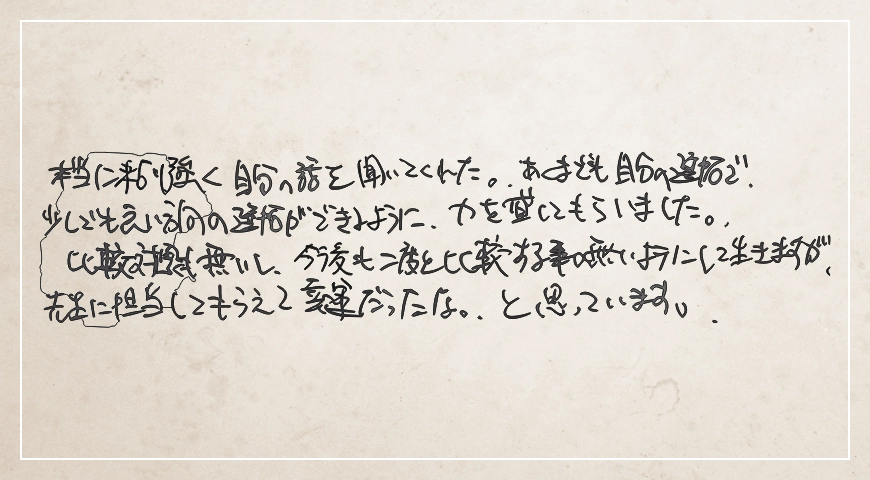 本当に粘り強く自分の話を聞いてくれた。あくまでも自分の運転で、
少しでもえい方向の運転ができるように、力を貸してもらいました。
比較対象も無いし、今後も二度と比較する事の無いようにして生きますが、
先生に担当してもらえて幸運だったな。と思っています。